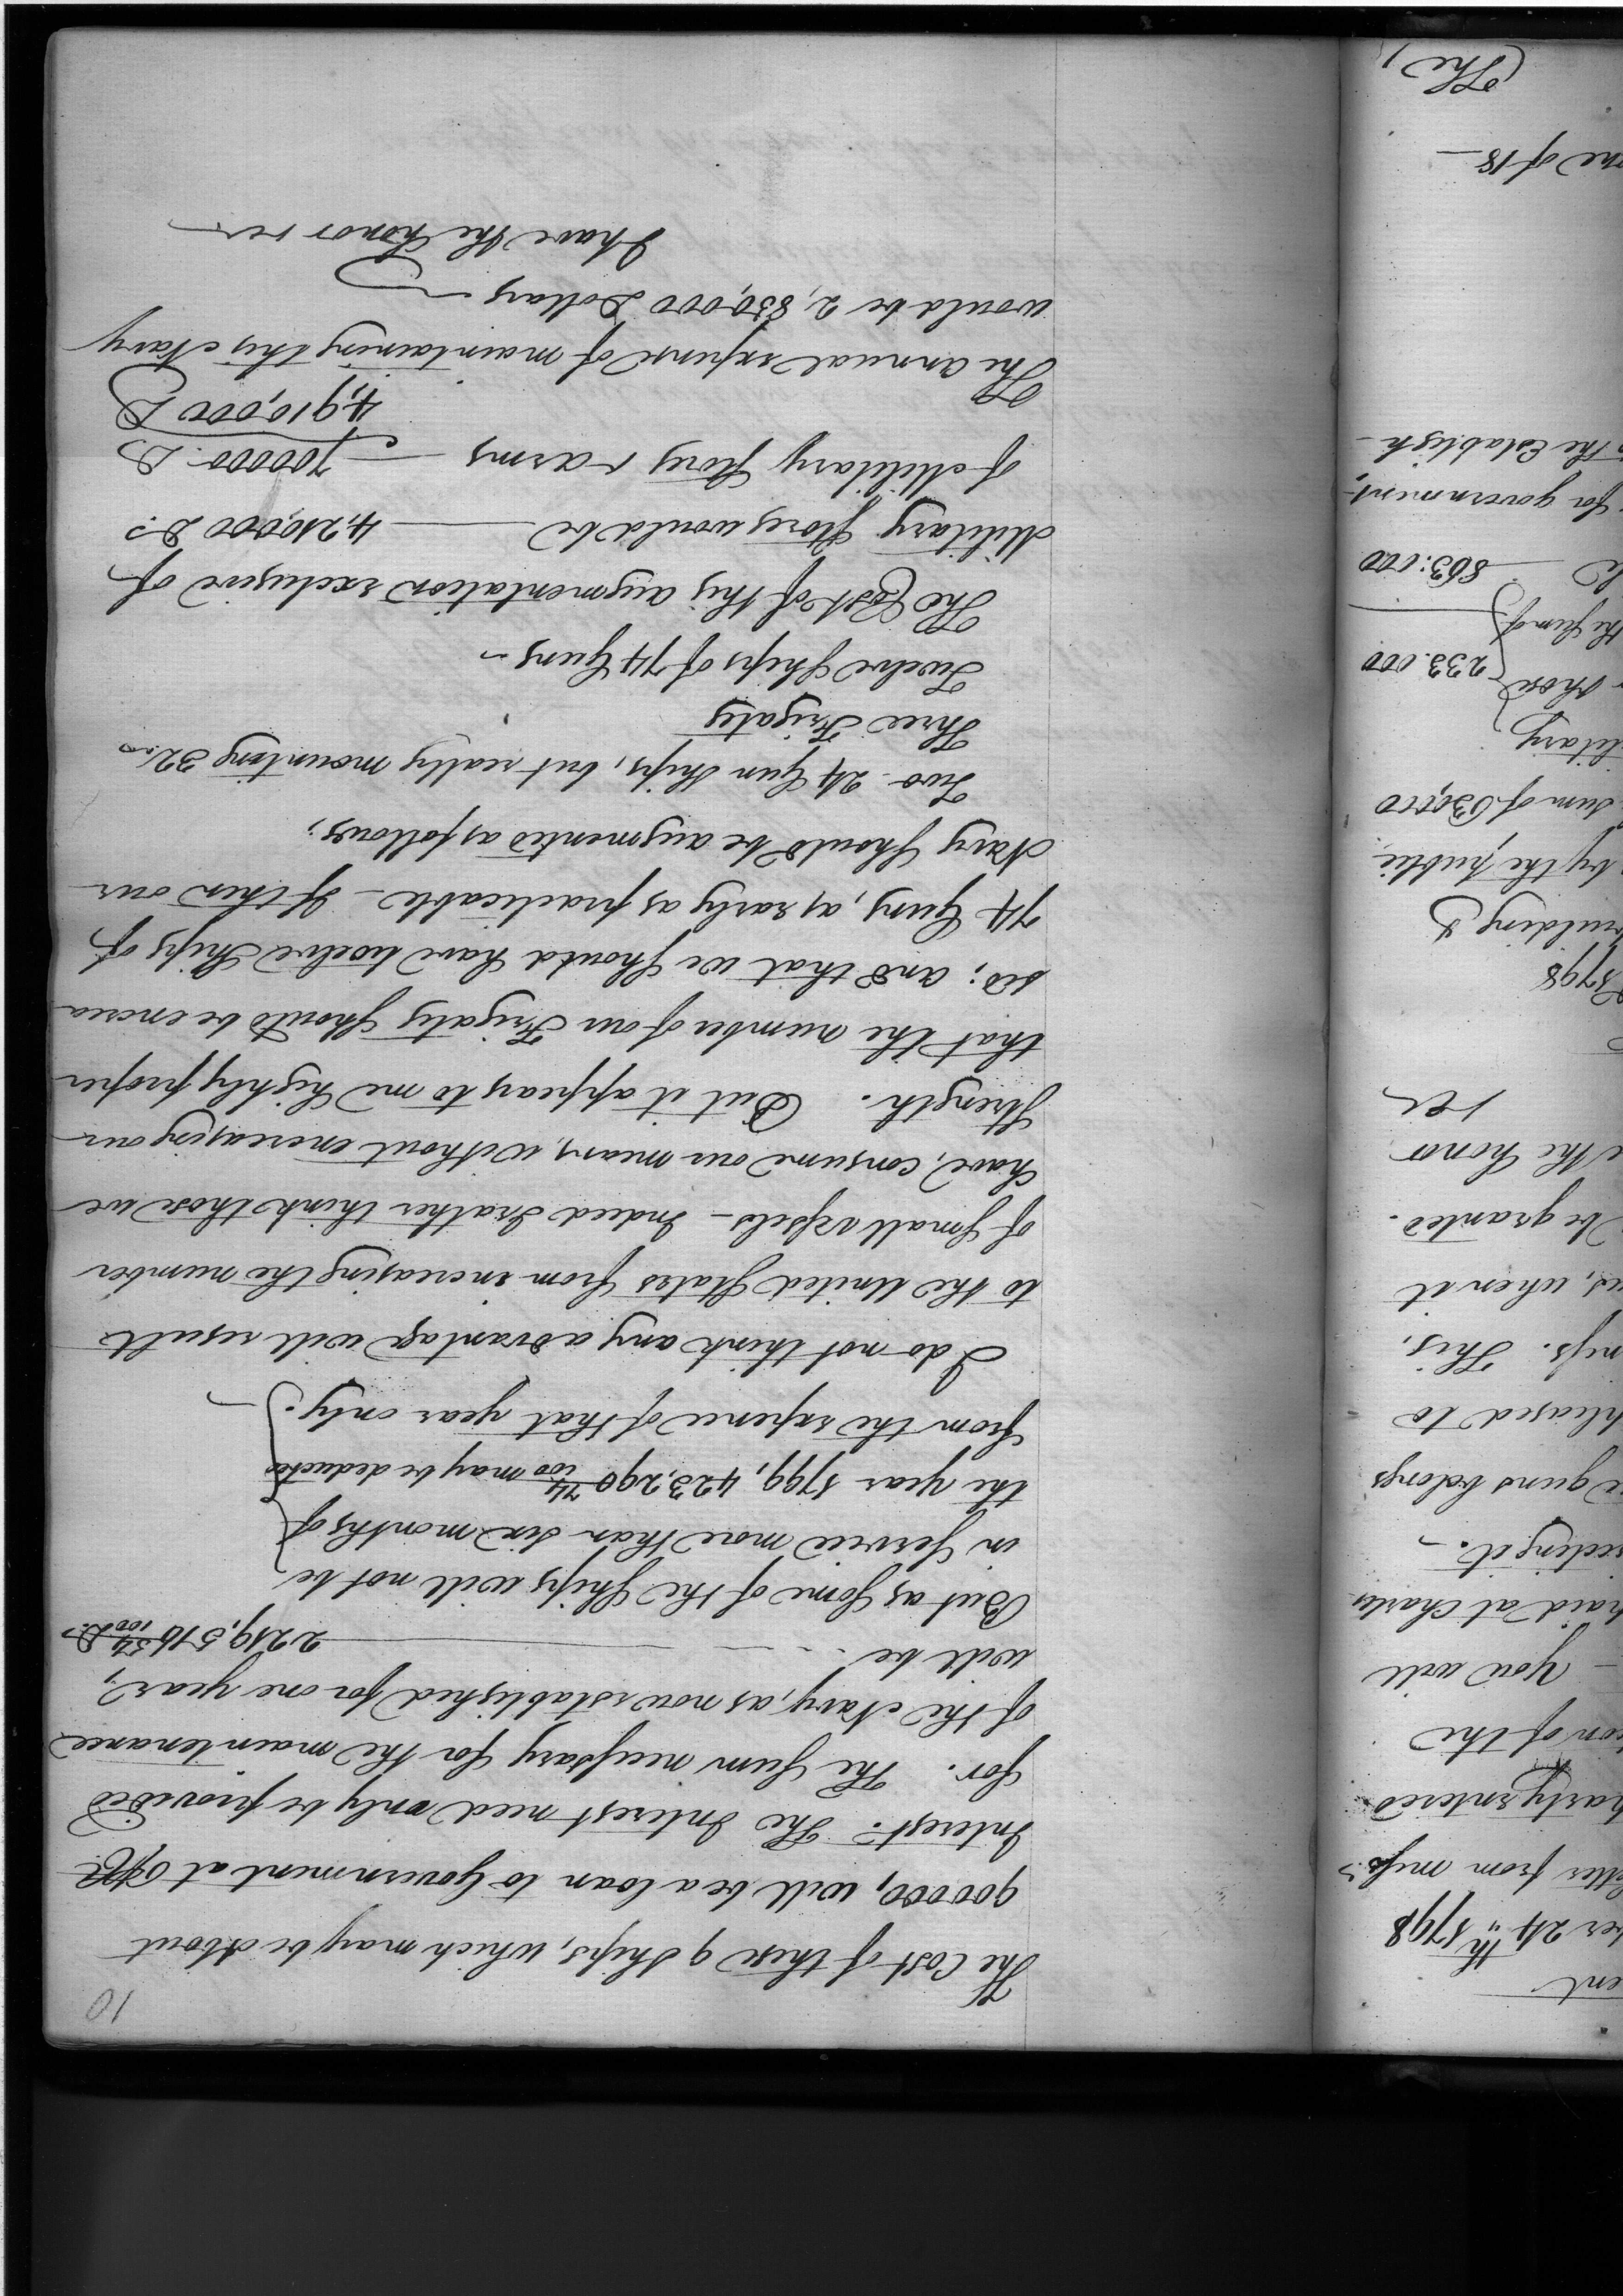 10
The Cost of these 9 Ships, which may be about
900000, will be a loan to Government at 6 pCt
Interest. The Interest need only be provided
for. The Sum necessary for the maintenance
of the Navy, as now established for one year,
will be 2,219,516 54/100 D.s
But as Some of the Ships will not be
in Service more than Six months of
the year 1799, 423,290 74/100 may be deducted
from the expence of that year only.
I do not think any advantage will result
to the United States from increasing the number
of Small vessels - Indeed I rather think those we
have, consume our means, without encreasing our
Strength. But it appears to me highly proper
that the number of our Frigates Should be encrea
sed; and that we Should have twelve Ships of
74 Guns, as early as practicable - If then our
Navy Should be augmented as follows;
Two 24 Gun Ships, but really mounting 32.
Three Frigates
Twelve Ships of 74 Guns -
The Cost of this augmentation exclusive of
Military Stores would be 4,210,000 D.s
of Military Stores & arms 700000 D.s
4,910,000 D
The annual expense of maintaining this Navy
would be 2,850,000 Dollars
I have the honor &ca
ent
ber 24th 1798
letter from mess.s
party entered
ion of the
- You will
paid at Charles
eeding it. -
guns belongs
pleased to
ness. This,
, when it
be granted.
e the honor
&ca
1798
uilding &
by the public
Sum of 630,000
litary
those 233.000
the Sum of
863.000
for government,
the Establish-
one of 18 -
(The)